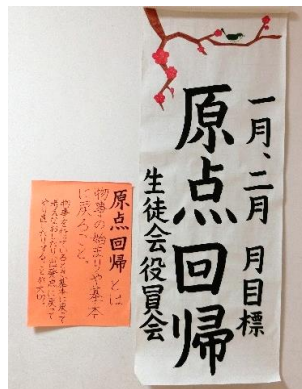 一月、二月 月目標
原点回帰
生徒会役員会
原点回帰とは
物事の始まりや基本
に戻ること。